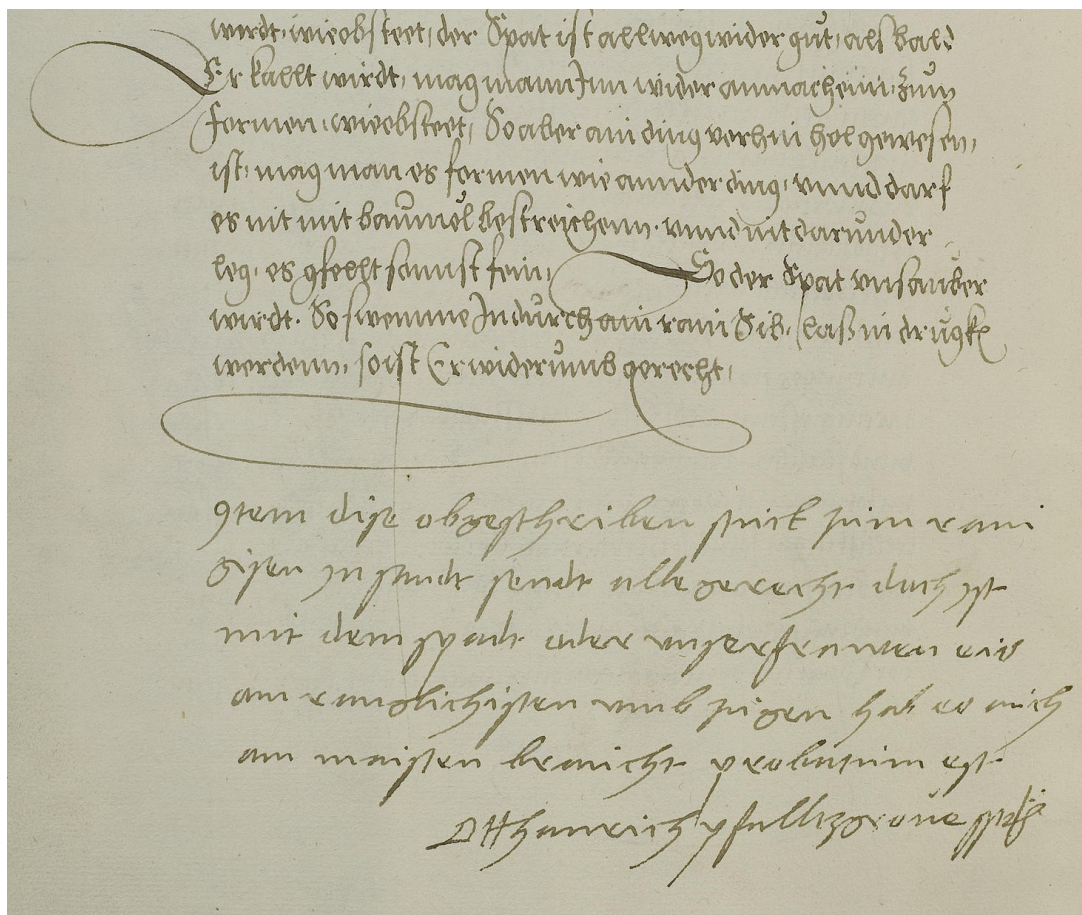 wirdt, wieobsteet, der Spat ist allweg wider gůt, als bald
Er kallt wirdt, mag mann Inn wider annmachenn, zům
formen, wieobsteet, So aber ain ding verhin hol gewesen,
ist, mag man es formen wie annder ding, vnnd darf
es nit mit baůmöl bestreichenn, vnnd nit darůnder
leg, es gfellt sonnst fein, So der Spat vnsauber
wirdt. So swemme In důrch ain rain Sib, laß in drugkh
werdenn, so ist Er widerůmb gerecht,
Item dise obgeschriben stuck zum rain
gisen yn sandt sendt alle gerecht doch yst
mit dem spadt oder vnserfrawen eis
am vmb gen hab es auch
am maisten braucht probatum est
Ottheinrich pfalltzgraue